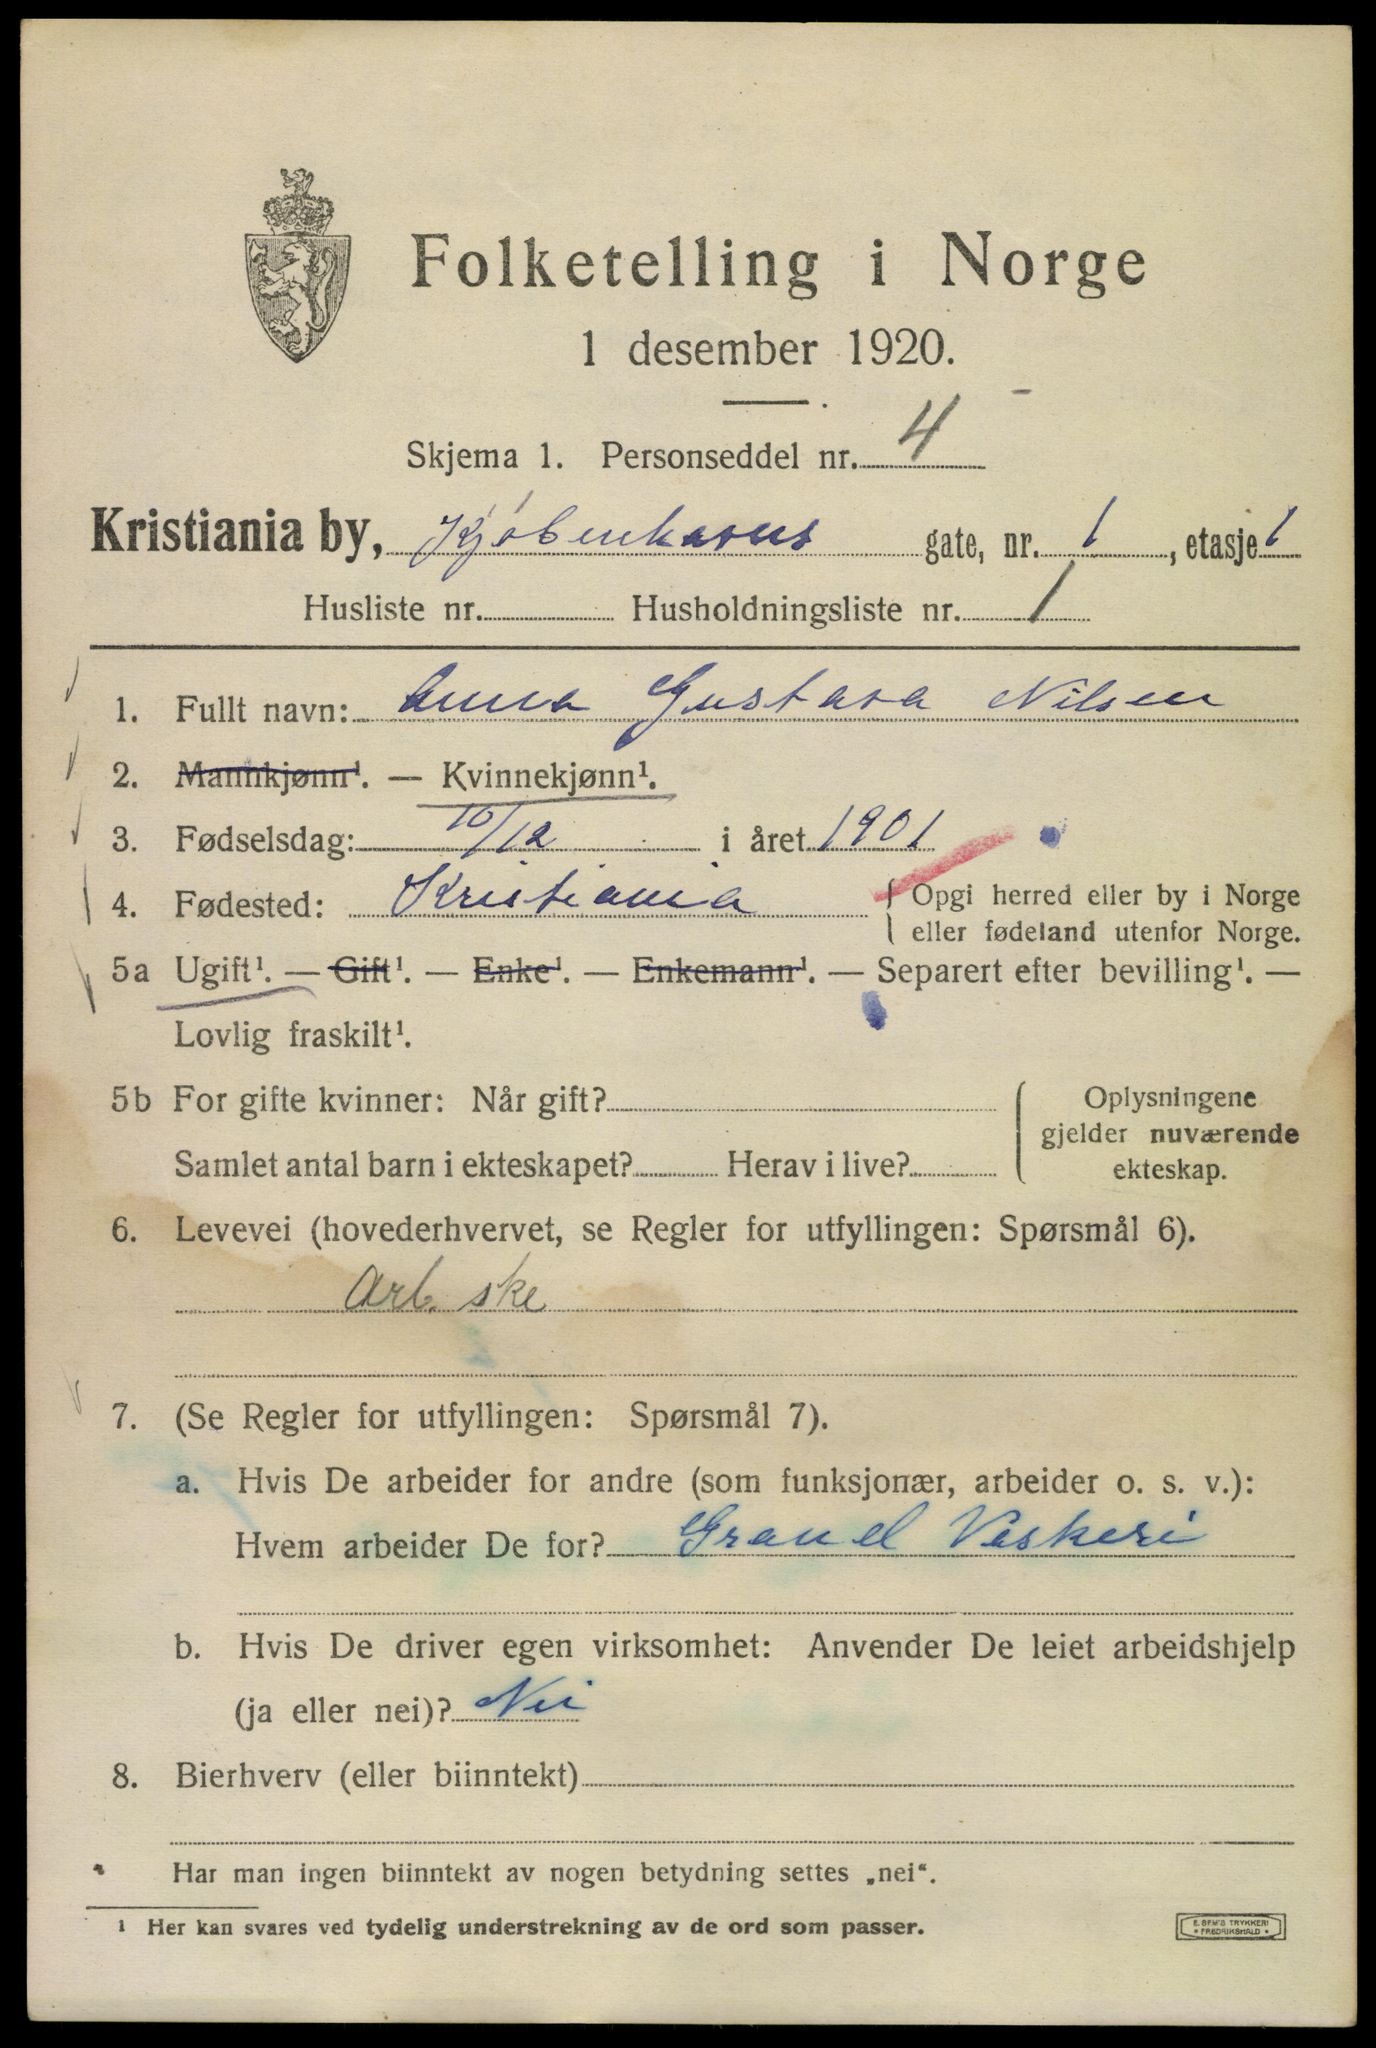 Folketelling i Norge
1 desember 1920.
Skjema 1. Personseddel nr. 4
Kristiania by, Kjøbenhavns gate, nr. 1, etasje 1
Husliste nr. Husholdningsliste nr. 1
1. Fullt navn: Anna Gustava Nilsen
2. Mannkjønn¹. — Kvinnekjønn¹.
3. Fødselsdag: 10/12 i året 1901
4. Fødested: Kristiania { Opgi herred eller by i Norge
eller fødeland utenfor Norge.
5a Ugift¹. — Gift¹. — Enke¹. — Enkemann¹. — Separert efter bevilling¹. —
Lovlig fraskilt¹.
5b For gifte kvinner: Når gift?
Samlet antal barn i ekteskapet? Herav i live?
Oplysningene
gjelder nuværende
ekteskap.
6. Levevei (hovederhvervet, se Regler for utfyllingen: Spørsmål 6).
Arb. ske
7. (Se Regler for utfyllingen: Spørsmål 7).
a. Hvis De arbeider for andre (som funksjonær, arbeider o. s. v.):
Hvem arbeider De for? Grand Veskeri
b. Hvis De driver egen virksomhet: Anvender De leiet arbeidshjelp
(ja eller nei)? Nei
8. Bierhverv (eller biinntekt)
Har man ingen biinntekt av nogen betydning settes „nei“.
¹ Her kan svares ved tydelig understrekning av de ord som passer.
E. SEM'S TRYKKERI
* FREDRIKSHALD *